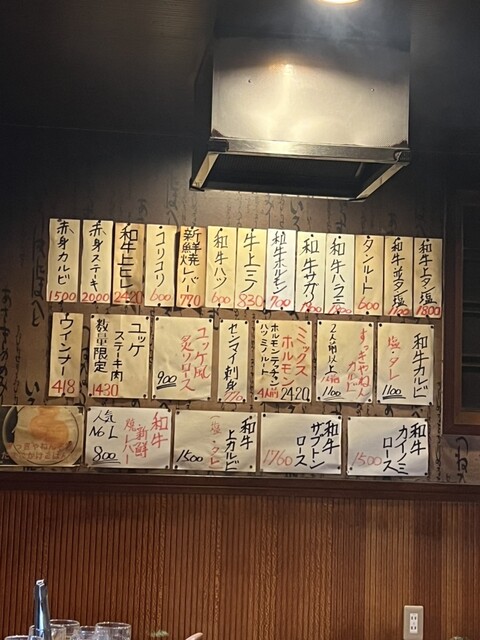 和牛上タン塩
1800
和牛並タン塩
タンルート
600
和牛ハラミ
和牛サガリ
和牛ホルモン
700
牛上ミノ
830
和牛ハツ
600
新鮮焼レバー
770
コリコリ
600
和牛上ヒレ
2420
赤身ステーキ
2000
赤身カルビ
1500
和牛カルビ
塩・タレ
1100
すきやねん
カルビ
2人前以上
1100
ミックス
ホルモン
ホルモンテッチャン
ハツミノルート
4人前
2420
センマイ刺身
770
ユッケ風
炙りロース
900
ユッケ
ステーキ肉
数量限定
1430
ウインナー
418
和牛
カイノミ
ロース
1500
和牛
ザブトン
ロース
1760
和牛
上カルビ
塩・タレ
1500
和牛
新鮮
焼レバー
人気
No.1
800